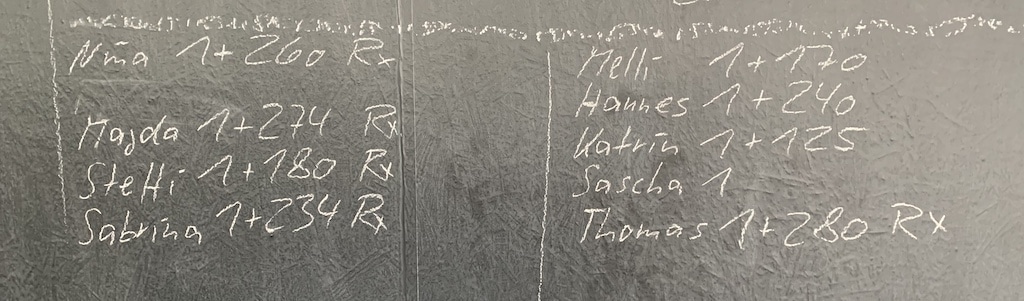 Nina 1+260 Rx
Majda 1+274 Rx
Steffi 1+180 Rx
Sabrina 1+234 Rx
Melli 1+170
Hannes 1+240
Katrin 1+125
Sascha 1
Thomas 1+280 Rx